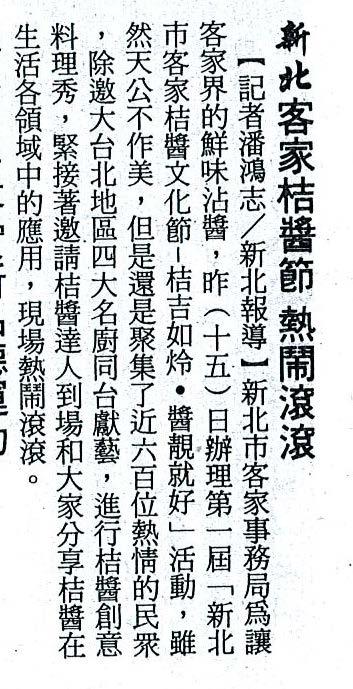 新北客家桔醬節 熱鬧滾滾
【記者潘鴻志／新北報導】新北市客家事務局為讓
客家界的鮮味沾醬，昨（十五）日辦理第一屆「新北
市客家桔醬文化節－桔吉如怜•醬靚就好」活動，雖
然天公不作美，但是還是聚集了近六百位熱情的民眾
，除邀大台北地區四大名廚同台獻藝，進行桔醬創意
料理秀，緊接著邀請桔醬達人到場和大家分享桔醬在
生活各領域中的應用，現場熱鬧滾滾。